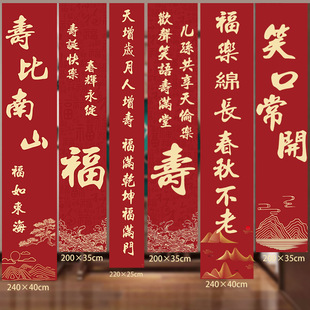 壽比南山
福如東海
240×40cm
壽誕快樂
春輝永綻
福
200×35cm
天增歲月人增壽
福滿乾坤福滿門
220×25cm
儿孫共享天倫樂
歡聲笑語壽滿堂
壽
200×35cm
福樂綿長
春秋不老
240×40cm
笑口常開
200×35cm